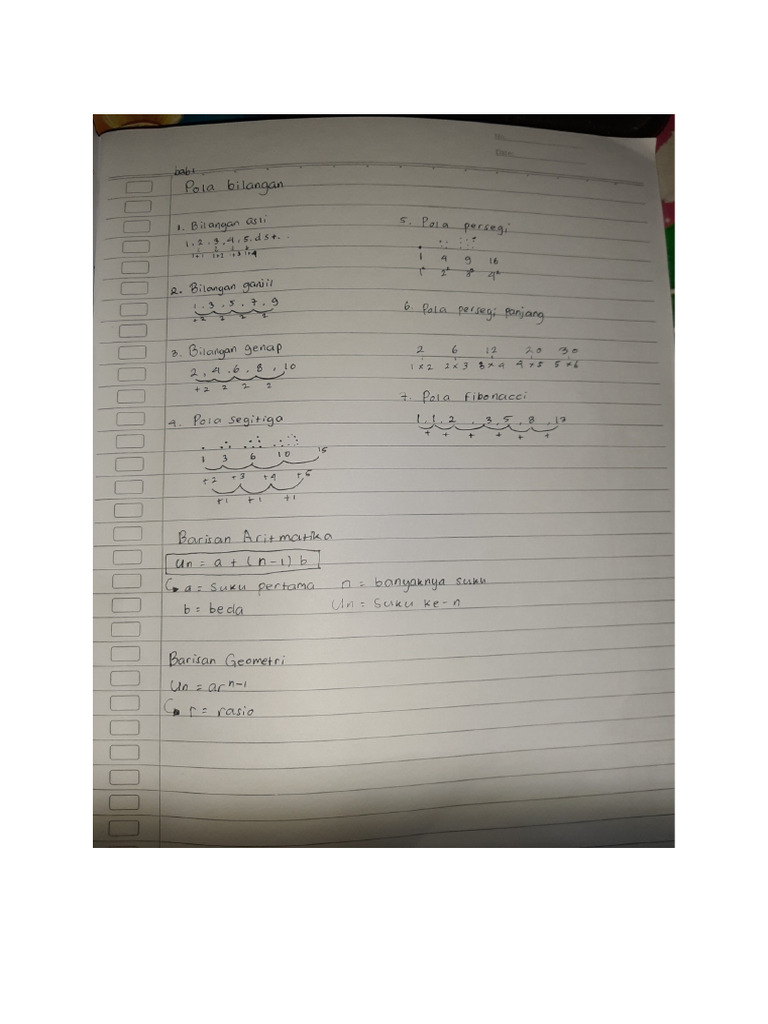 bab 1
Pola bilangan
1. Bilangan asli
1, 2, 3, 4, 5, dst...
1+1 1+2 1+3 1+4
2. Bilangan ganjil
1, 3, 5, 7, 9
+2 2 2 2
3. Bilangan genap
2, 4, 6, 8, 10
+2 2 2 2
4. Pola segitiga
1 3 6 10 15
+2 +3 +4 +5
+1 +1 +1
5. Pola persegi
1 4 9 16
1² 2² 3² 4²
6. Pola persegi panjang
2 6 12 20 30
1×2 2×3 3×4 4×5 5×6
7. Pola Fibonacci
1, 1, 2, 3, 5, 8, 13
+ + + + + +
Barisan Aritmatika
Un = a + (n-1) b
a = suku pertama n = banyaknya suku
b = beda Un = suku ke-n
Barisan Geometri
Un = arⁿ⁻¹
r = rasio